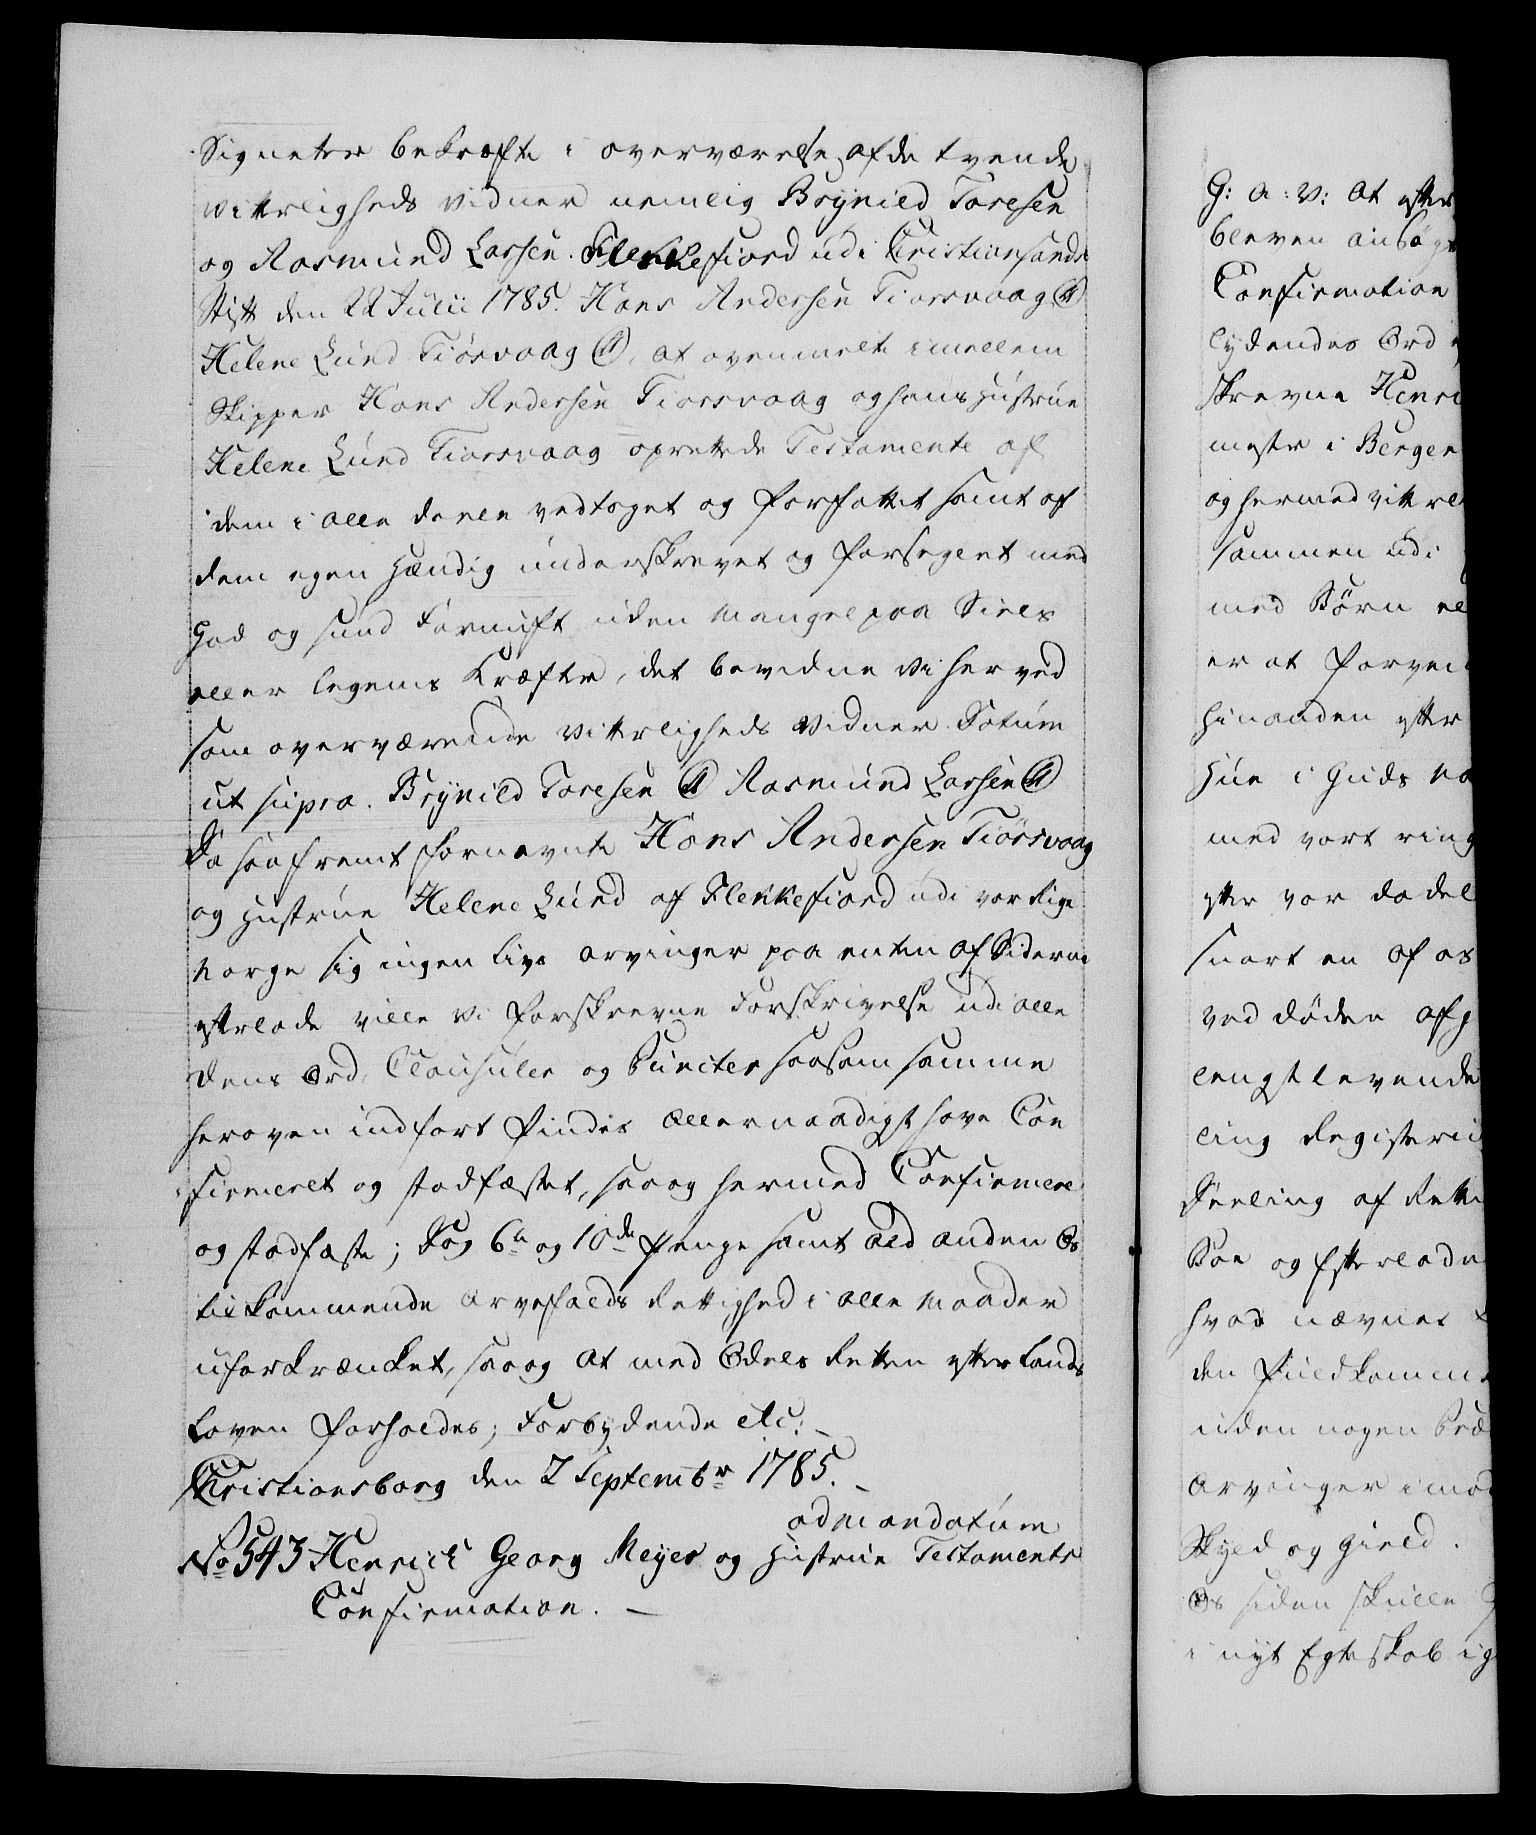 Signeter bekræfte i overværelse af de tvende
vitterligheds vidner nemlig Brynild Toresen
og Aasmund Larsen. Flekkefiord udi Christiansands
Stift den 22 Julii 1785. Hans Andersen Tiorsvaag
Helene Lund Tiørsvaag, at ovenmelte imellem
Skipper Hans Andersen Tiorsvaag og hans Hustrue
Helene Lund Tiorsvaag oprettede Testamente af
dem i alle deele vedtaget og forfattet samt af
dem egenhændig underskrevet og forseglet med
god og sund Fornuft uden Mangel paa Siels
eller legems Kræfter, det bevidne vi herved
som overværende vitterligheds Vidner. Datum
ut supra. Brynild Toresen Aasmund Larsen
Da saafremt fornævnte Hans Andersen Tiørsvaag
og Hustrue Helene Lund af Flekkefiord udi vor Rige
Norge sig ingen livs arvinger paa enten af Siderne
efterlade ville vi forskrevne Forskrivelse udi alle
dens Ord, Clausuler og Puncter saasom samme
heroven indført findes Allernaadigst have Con
firmeret og stadfæstet, saa og hermed Confirmere
og stadfæste; Dog 6te og 10de Penge samt ald anden Os
tilkommende Arvefalds Rettighed i alle Maader
uforkrænket, saa og at med Odels Retten efter Lands
Loven forholdes; Forbydende etc:
Christiansborg den 2 Septembr 1785.
ad mandatum
No 543 Henrich Georg Meyer og Hustrue Testaments
Confirmation.
G: a: V: at efter
bleven ansøgt
Confirmation
lydendes Ord
skrevne Henri
mester i Bergen
og hermed vitterl
sammen udi
med Børn el
er at forvei
hinanden efter
Hun i Guds Na
med vort ring
efter vor dødel
snart en af os
ved døden afg
lengstlevende
ling Registerin
Deeling af Rette
Boe og Efterlade
hvad nævnes
den fuldkomme
uden nogen Præ
Arvinger imod
Skyld og Gield.
Os siden skulle
i nyt Egteskab ig